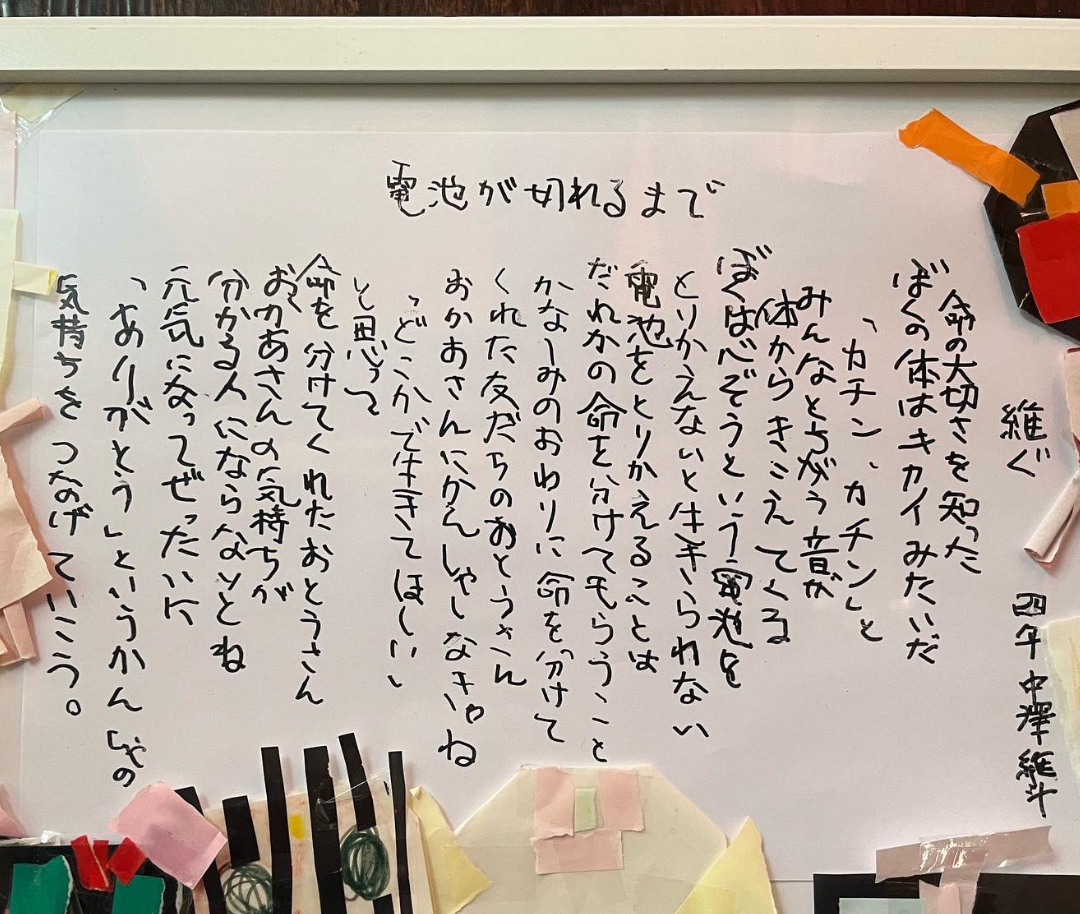 電池が切れるまで
維ぐ 四年 中澤維斗
命の大切さを知った
ぼくの体はキカイみたいだ
「カチン、カチン」と
みんなとちがう音が
体からきこえてくる
ぼくは心ぞうという電池を
とりかえないと生きられない
電池をとりかえることは
だれかの命を分けてもらうこと
かなしみのおわりに命を分けて
くれた友だちのおとうさん
おかあさんにかんしゃしなきゃね
「どこかで生きてほしい」
と思って
命を分けてくれたおとうさん
おかあさんの気持ちが
分かる人にならないとね
元気になってぜったいに
「ありがとう」というかんしゃの
気持ちをつなげていこう。